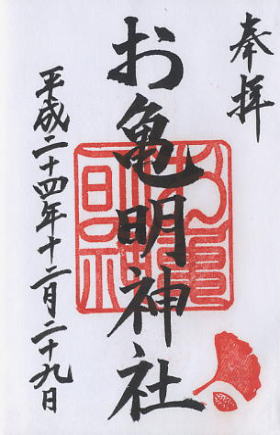 奉拝
お亀明神社
平成二十四年十二月二十九日